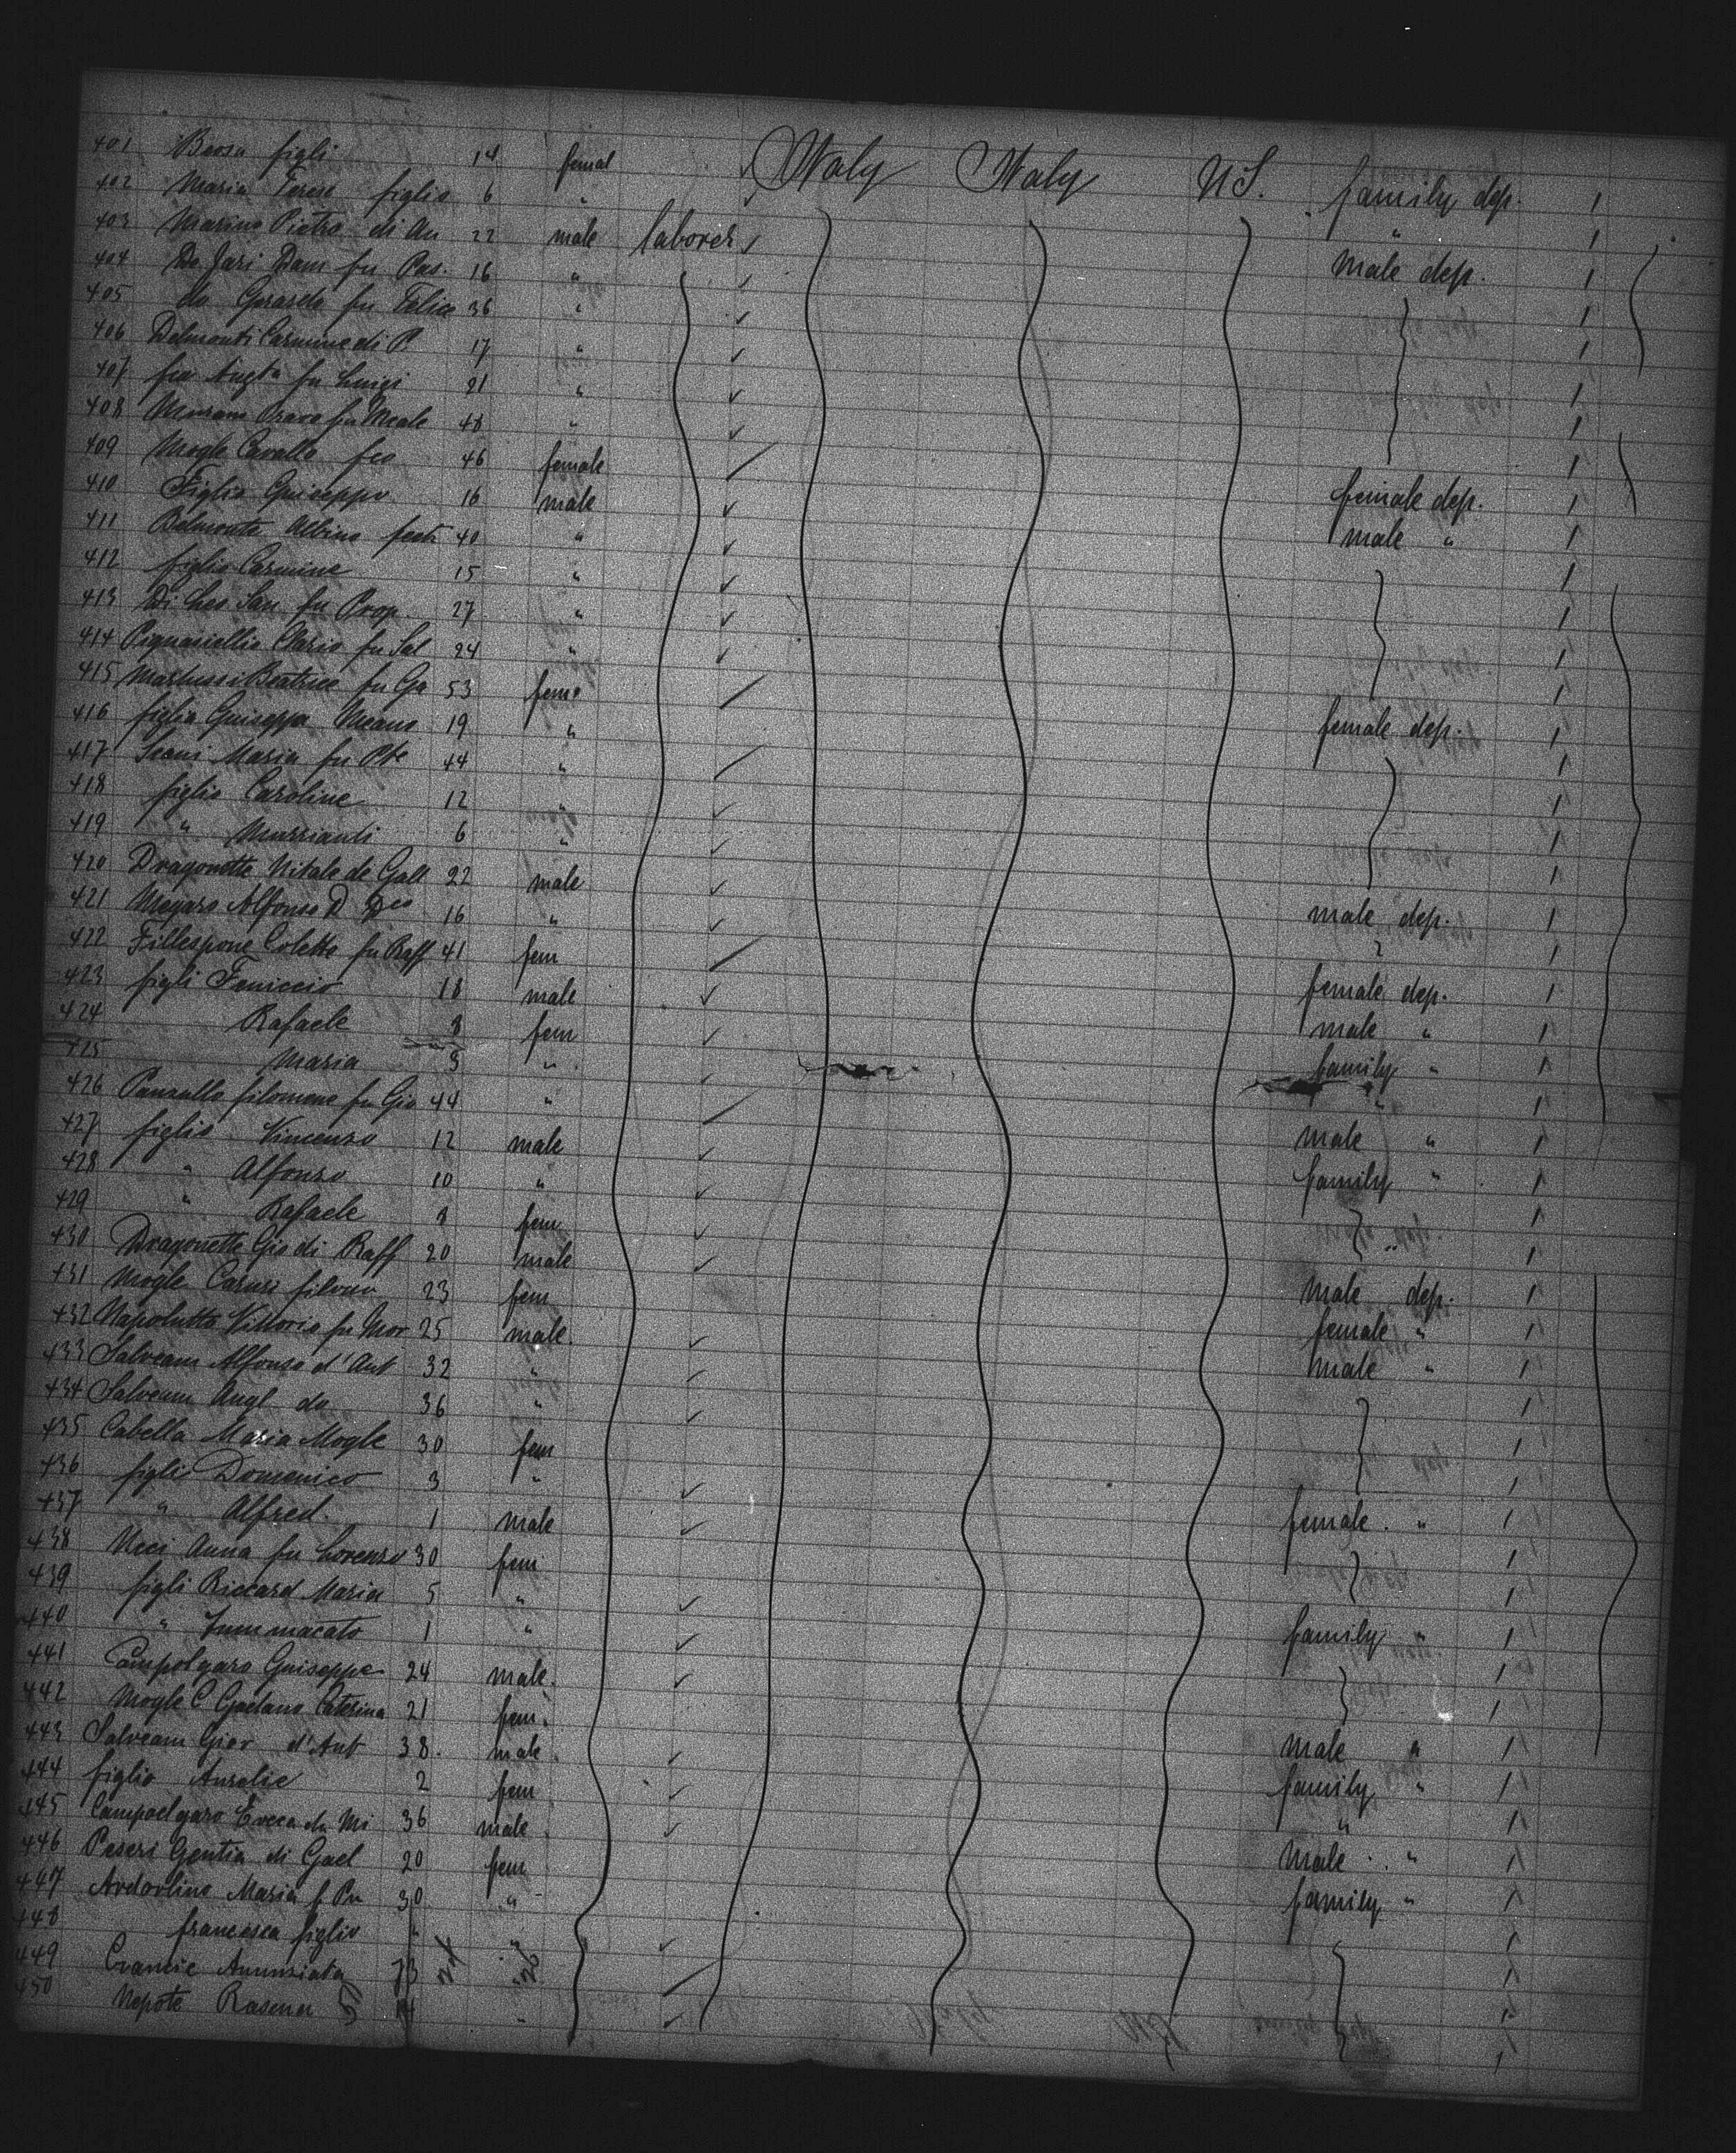 401 Beosa figli 14 femal Italy Italy U.S. family dep. 1
402 Maria Terese figlio 6 " " 1
403 Marino Pietro di An 22 male laborer male dep. 1
404 De Jasi Dam fu Pas. 16 " 1
405 do Gerardo fu Felice 36 " 1
406 Delmonti Carmine di P. 17 " 1
407 fu Luigi 21 " 1
408 fu Meale 48 " 1
409 Mogle Cavallo fco 46 female female dep. 1
410 Figlio Guiseppe 16 male male " 1
411 Belmonte Albino 40 " 1
412 figlio Carmine 15 " 1
413 Di Leo San fu Prop. 27 " 1
414 Pignaniellio Mario fu Sal 24 " 1
415 Martussi Beatrice fu Ga 53 feme female dep. 1
416 figlia Guiseppa Meano 19 " 1
417 Maria fu Pte 44 " 1
418 figlia Caroline 12 " 1
419 " 6 " 1
420 Dragonette Vitale de Gall 22 male male dep. 1
421 Megaro Alfonso D Deo 16 " " 1
422 Fillespone Colette fu Raff 41 fem female dep. 1
423 figli Feniccio 18 male male " 1
424 Rafaele 8 fem family " 1
425 Maria 3 " " 1
426 Pansallo filomene fu Gio 44 " male " 1
427 figlio Vincenzo 12 male family " 1
428 " Alfonso 10 " 1
429 " Rafaele 8 fem " 1
430 Dragonette Gio di Raff 20 male male dep. 1
431 Mogle Carusi filomo 23 fem female " 1
432 Napolutto Vittorio fu Mor 25 male. male " 1
433 Salveam Alfonso d'Ant 32 " 1
434 Salveam Angl do 36 " 1
435 Cabella Maria Mogle 30 fem 1
436 figli Domenico 3 " female. " 1
437 " Alfred. 1 male 1
438 Ucci Anna fu Lorenzo 30 fem 1
439 figli Riccard Maria 5 " family " 1
440 " 1 " 1
441 Campolgaro Guiseppe 24 male. 1
442 Mogle C Gaetano Caterina 21 fem. male " 1
443 Salveam Giov d'Ant 38. male family " 1
444 figlio Aurelie 2 fem " 1
445 Campoelgaro du Mi 36 male male " 1
446 Peseri Gentia di Gael 20 fem family " 1
447 Ardovlino Maria f Pu 30 " 1
448 francesca figlio " " 1
449 Annunziata 73 1
450 Nepote Rasena " 1